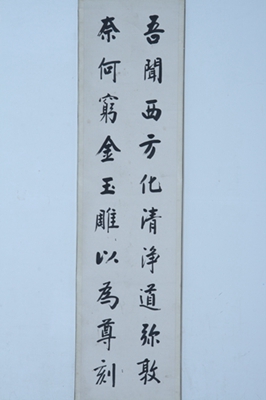 吾聞西方化清淨道弥敦
奈何窮金玉雕以為尊刻